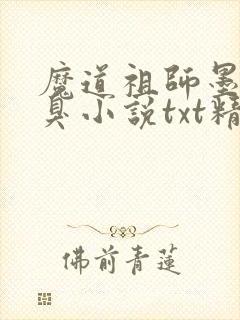 魔道祖師墨
臭小說txt精
佛前青蓮